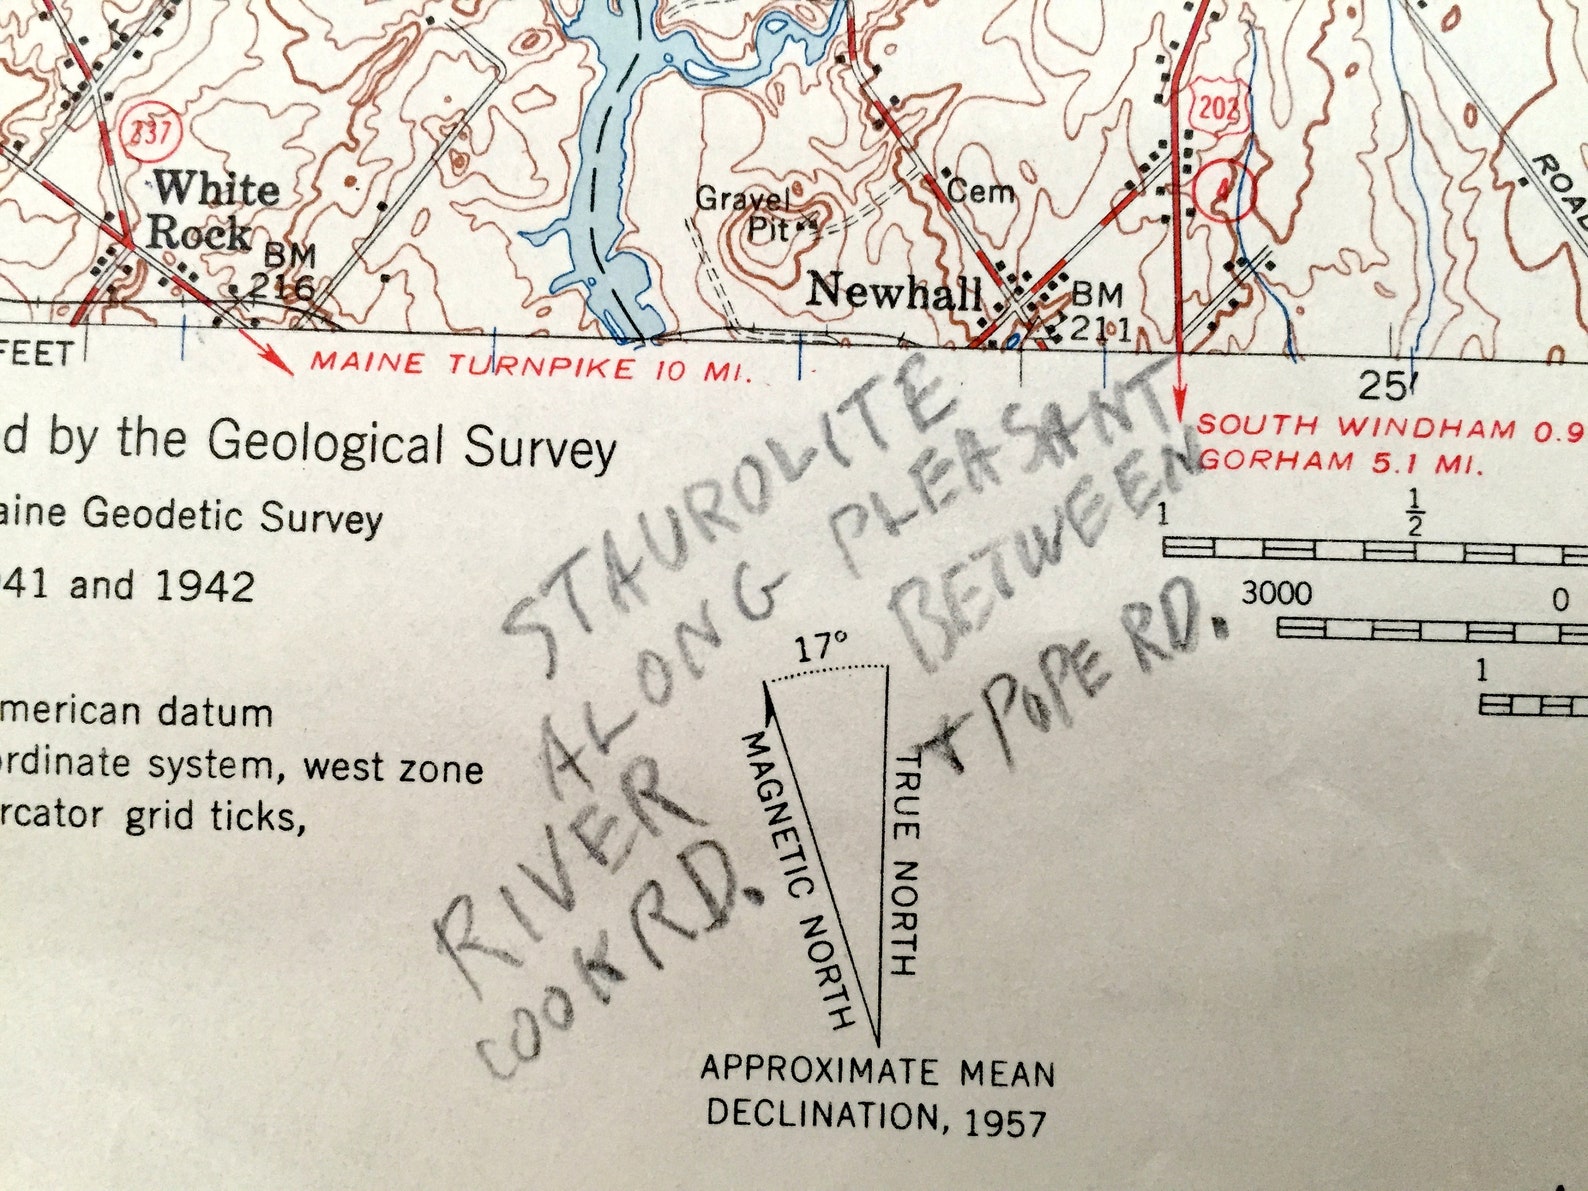 237
White
Rock
BM
216
Gravel
Pit
Cem
Newhall
BM
211
202
4
ROAD
FEET
MAINE TURNPIKE 10 MI.
25'
SOUTH WINDHAM 0.9
GORHAM 5.1 MI.
d by the Geological Survey
aine Geodetic Survey
41 and 1942
merican datum
ordinate system, west zone
rcator grid ticks,
STAUROLITE
ALONG PLEASANT
RIVER BETWEEN
COOK RD. + POPE RD.
1 1/2
3000 0
1
17°
MAGNETIC NORTH
TRUE NORTH
APPROXIMATE MEAN
DECLINATION, 1957